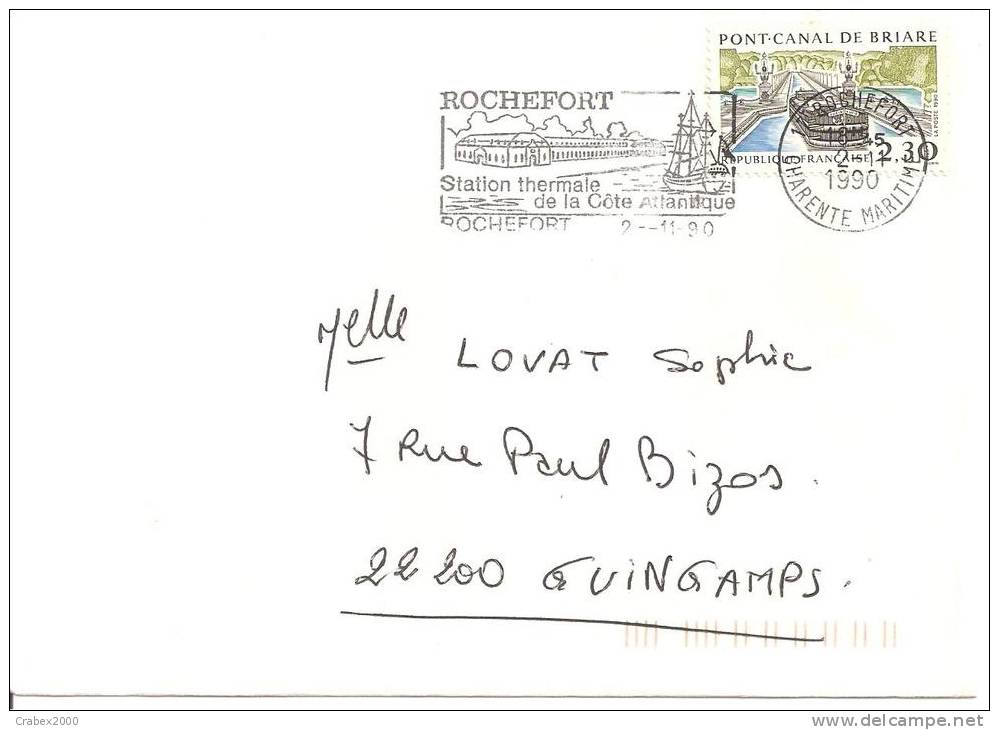 PONT-CANAL DE BRIARE
LA POSTE 1990
RÉPUBLIQUE FRANÇAISE 2,30
ROCHEFORT
1990
CHARENTE MARITIME
ROCHEFORT
Station thermale
de la Côte Atlantique
ROCHEFORT 2--11-90
Melle LOVAT Sophie
7 Rue Paul Bizos.
22200 GUINGAMPS.
Crabex2000
www.delcampe.net